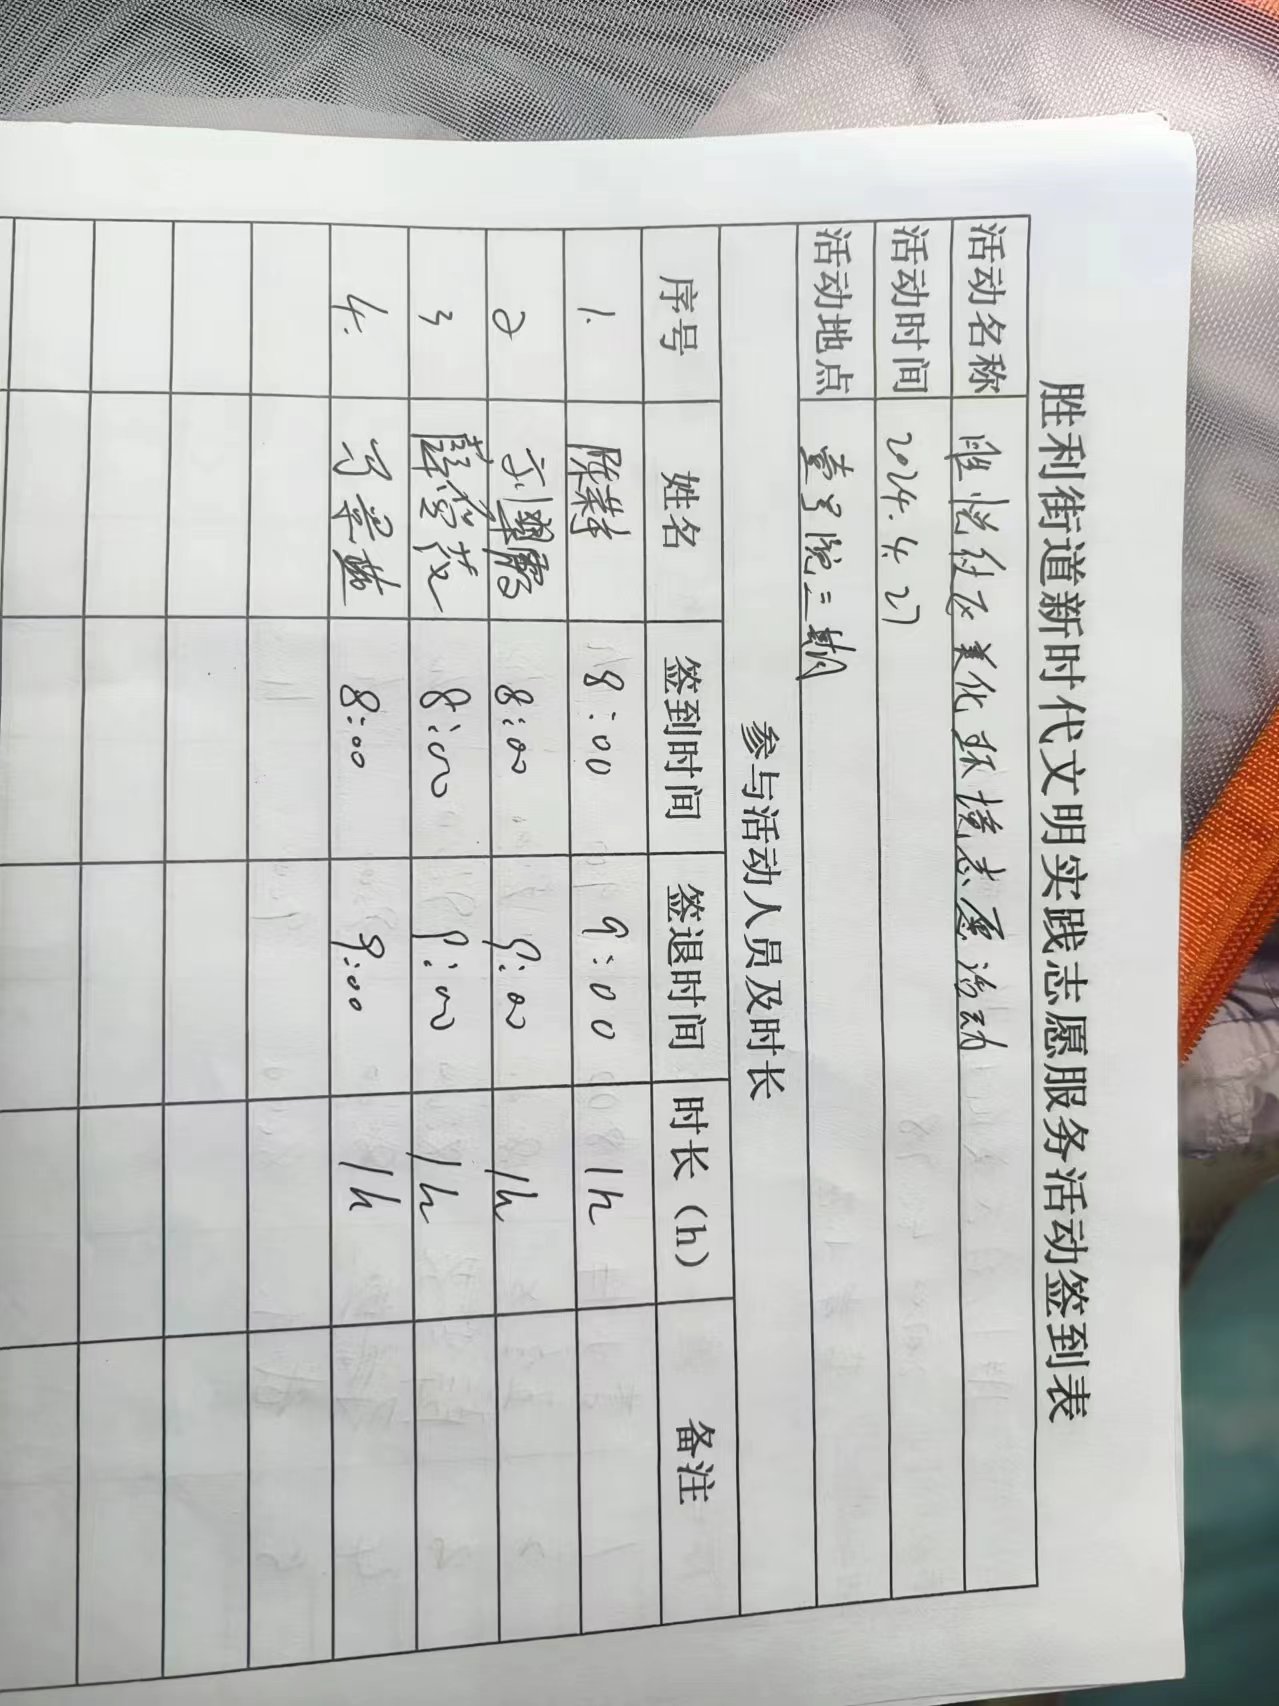 胜利街道新时代文明实践志愿服务活动签到表
活动名称 胜悦社区美化环境志愿活动
活动时间 2024.4.27
活动地点 壹号院二期
参与活动人员及时长
序号 姓名 签到时间 签退时间 时长（h） 备注
1. 陈莉 8:00 9:00 1h
2 刘 8:00 9:00 1h
3 薛 8:00 9:00 1h
4. 8:00 9:00 1h